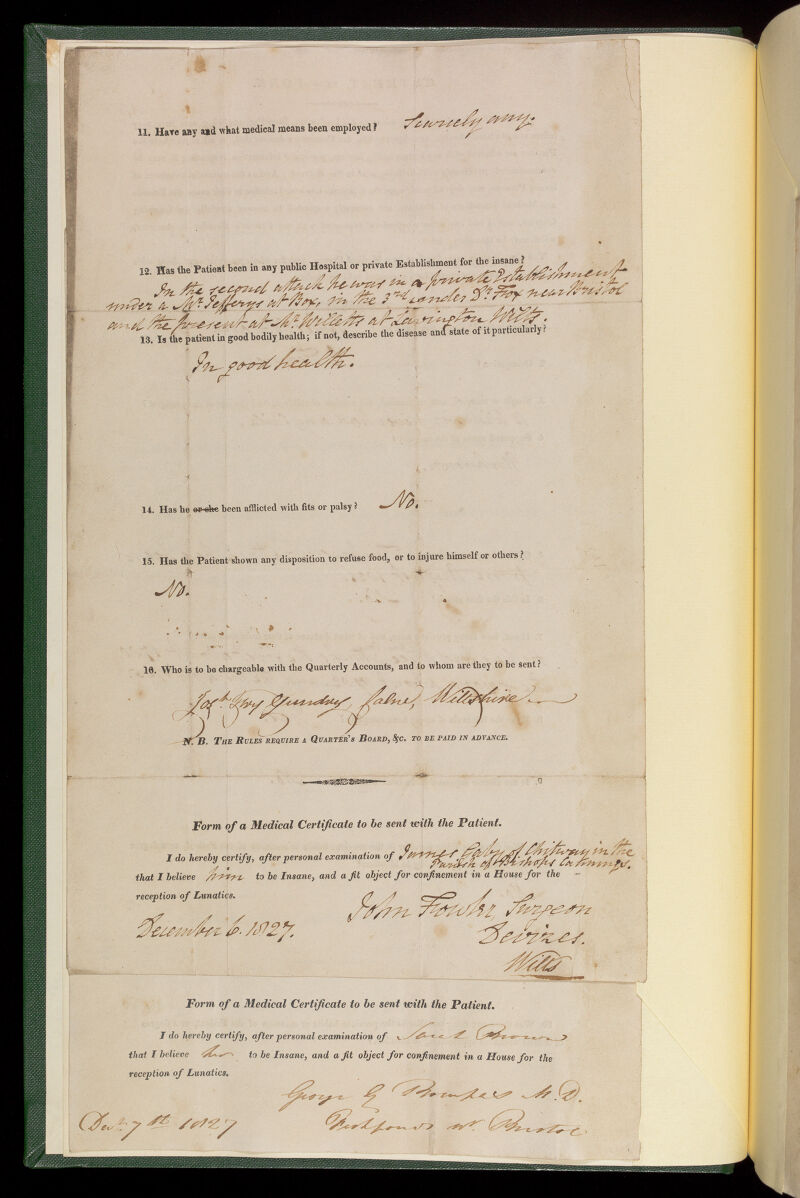 11. Have any and what medical means been employed? Scarcely any.
12. Has the Patient been in any public Hospital or private Establishment for the insane?
In the second attack he was in a private Establishment
under a Mr. Jefferys at Box, in the 3rd under Dr. Fox near Bristol
and the present at Mr. Willetts at Lavington Wilts.
13. Is the patient in good bodily health; if not, describe the disease and state of it particularly?
In good health.
14. Has he or she been afflicted with fits or palsy? No.
15. Has the Patient shown any disposition to refuse food, or to injure himself or others?
No.
16. Who is to be chargeable with the Quarterly Accounts, and to whom are they to be sent?
Gundry Calne, Wiltshire
N. B. The Rules require a Quarter's Board, &c. to be paid in advance.
Form of a Medical Certificate to be sent with the Patient.
I do hereby certify, after personal examination of James of Chitway in the
Parish of Bishops Cannings.
that I believe him to be Insane, and a fit object for confinement in a House for the
reception of Lunatics.
John Fowler, Surgeon
December 6. 1827.
Devizes.
Wilts
Form of a Medical Certificate to be sent with the Patient.
I do hereby certify, after personal examination of
that I believe to be Insane, and a fit object for confinement in a House for the
reception of Lunatics.
George G M.D.
Decr. 7th 1827 Fishponds nr. Bristol